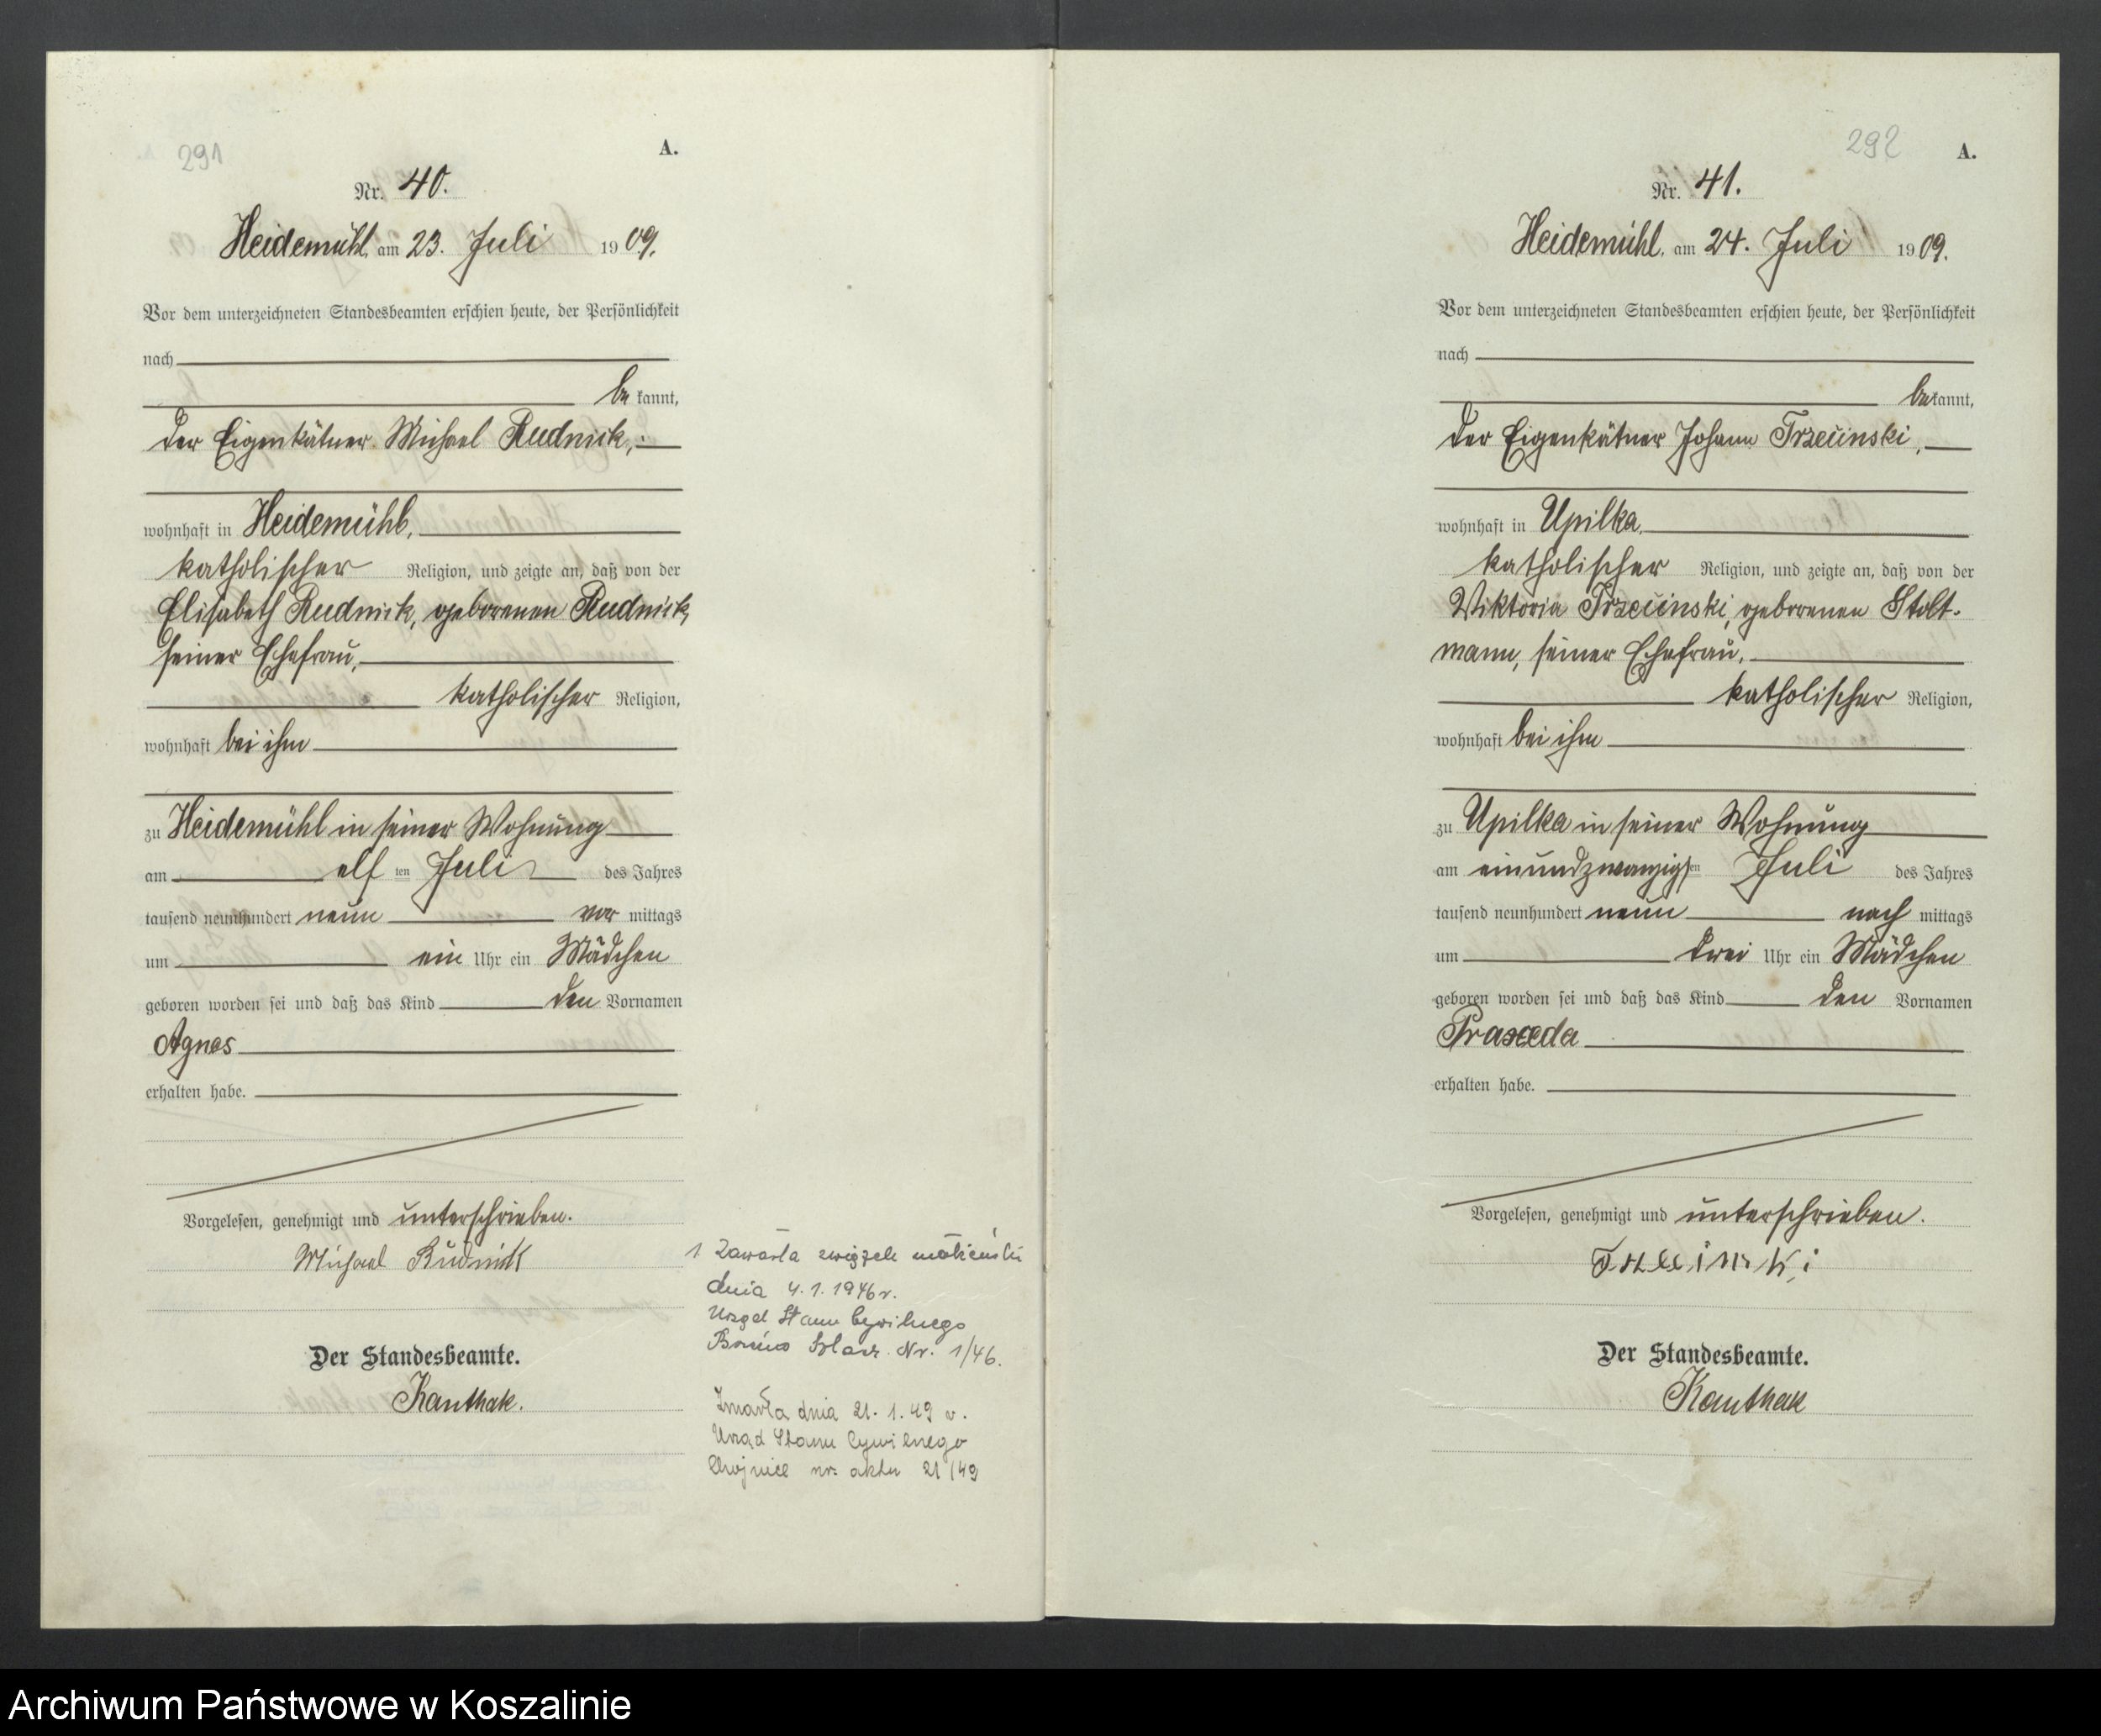 291
A.
Nr. 40.
Heidemühl, am 23. Juli 1909.
Vor dem unterzeichneten Standesbeamten erschien heute, der Persönlichkeit
nach
bekannt,
der Eigenkätner Michael Rudnick,
wohnhaft in Heidemühl,
katholischer Religion, und zeigte an, daß von der
Elisabeth Rudnick, geborenen Rudnick,
seiner Ehefrau,
katholischer Religion,
wohnhaft bei ihm
zu Heidemühl in seiner Wohnung
am elften Juli des Jahres
tausend neunhundert neun vormittags
um ein Uhr ein Mädchen
geboren worden sei und daß das Kind den Vornamen
Agnes
erhalten habe.
Vorgelesen, genehmigt und unterschrieben.
Michael Rudnick
Der Standesbeamte.
Kanthak.
1 Zawarła związek małżeński
dnia 4.1.1946 r.
Urząd Stanu Cywilnego
Szlach. Nr. 1/46.
Zmarła dnia 21.1.49 r.
Urząd Stanu Cywilnego
Chojnice nr. aktu 21/49
292
A.
Nr. 41.
Heidemühl, am 24. Juli 1909.
Vor dem unterzeichneten Standesbeamten erschien heute, der Persönlichkeit
nach
bekannt,
der Eigenkätner Johann Trzecinski,
wohnhaft in Upilka,
katholischer Religion, und zeigte an, daß von der
Wiktoria Trzecinski, geborenen Stolt-
mann, seiner Ehefrau,
katholischer Religion,
wohnhaft bei ihm
zu Upilka in seiner Wohnung
am einundzwanzigsten Juli des Jahres
tausend neunhundert neun nachmittags
um drei Uhr ein Mädchen
geboren worden sei und daß das Kind den Vornamen
Praxeda
erhalten habe.
Vorgelesen, genehmigt und unterschrieben.
Der Standesbeamte.
Kanthak
Archiwum Państwowe w Koszalinie